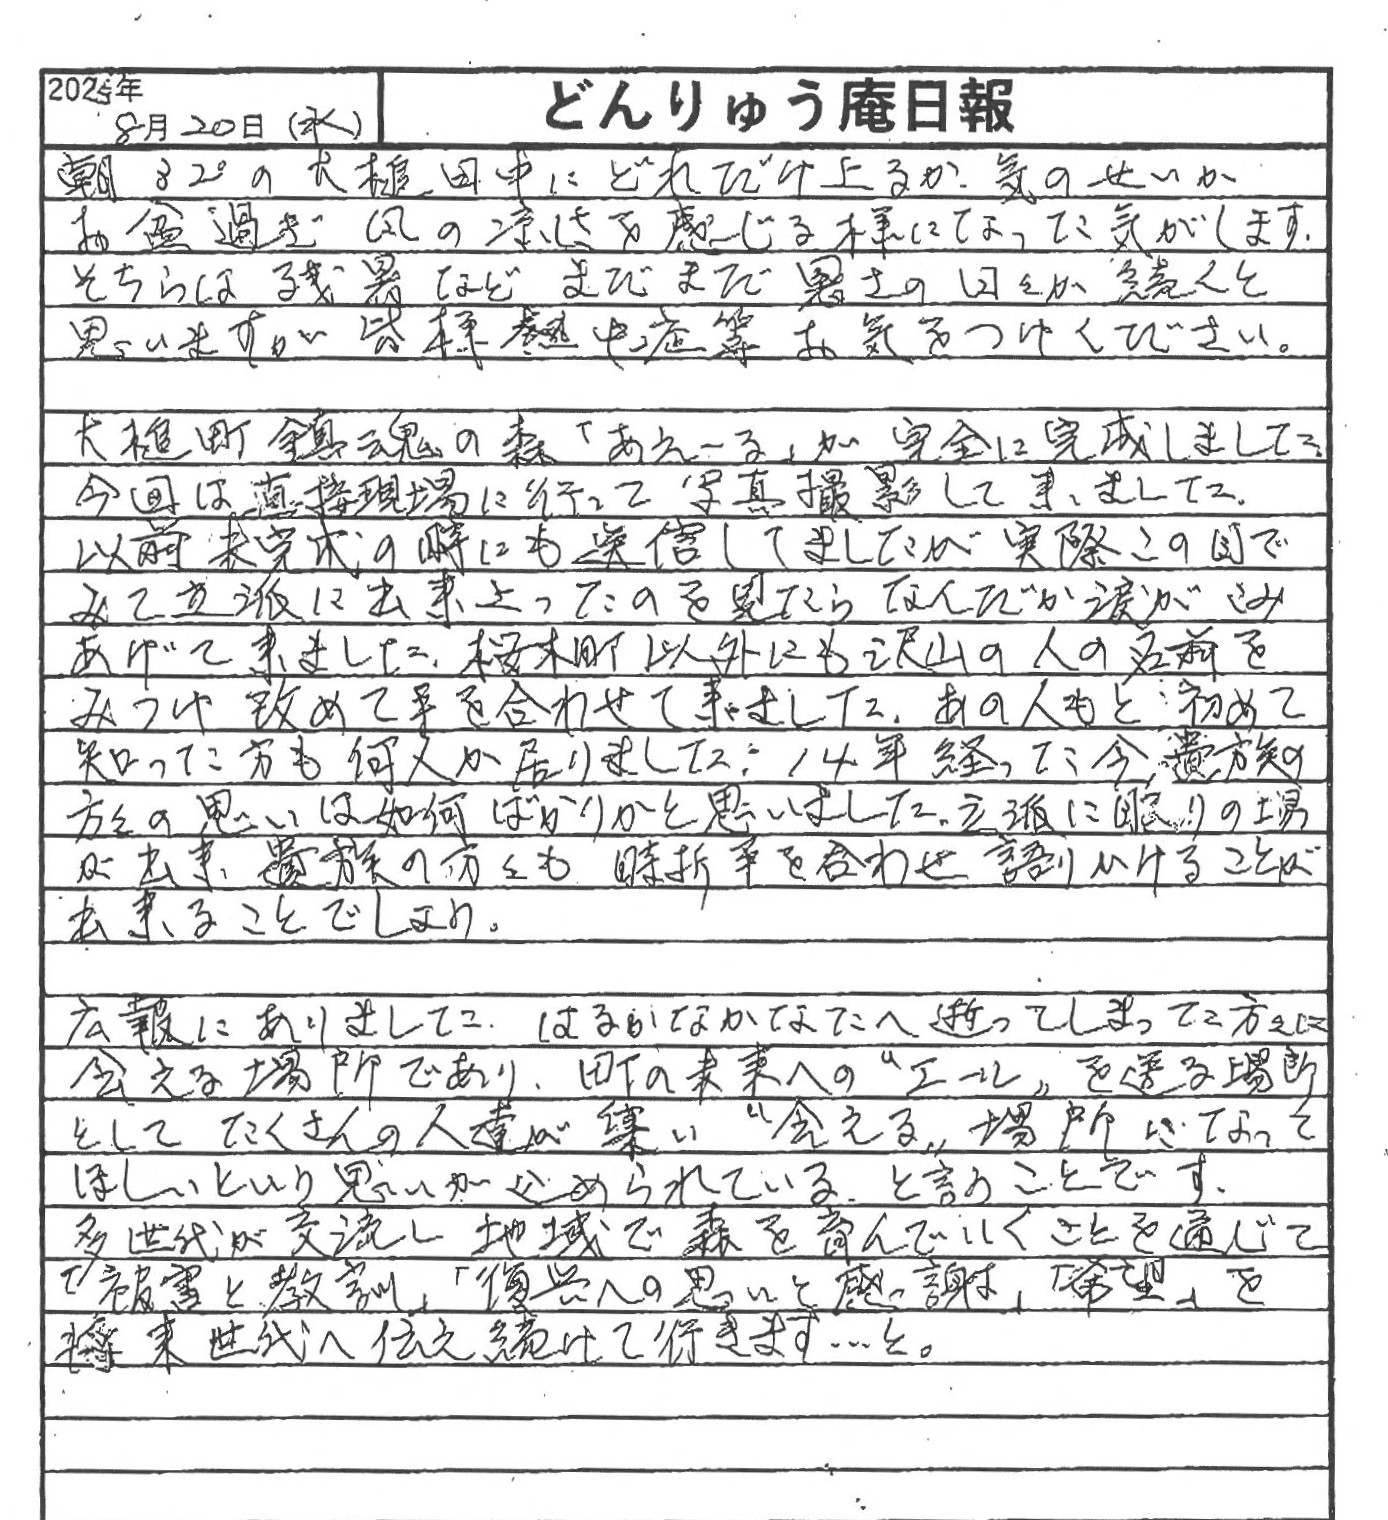 2025年
8月20日(水)
どんりゅう庵日報
朝32°の大槌 日中にどれだけ上るか、気のせいか
お盆過ぎ 風の涼しさを感じる様になった気がします。
そちらは残暑などまだまだ暑さの日々が続くと
思いますが皆様熱中症等お気をつけください。
大槌町鎮魂の森「あえーる」が完全に完成しました
今回は直接現場に行って写真撮影して来ました。
以前未完成の時にも送信してましたが実際この目で
みて立派に出来上ったのを見たらなんだか涙がこみ
あげて来ました。桜木町以外にも沢山の人の名前を
みつけ改めて手を合わせて来ました。あの人もと初めて
知った方も何人か居りました。14年経った今遺族の
方々の思いは如何ばかりかと思いました。立派に眠りの場
が出来、遺族の方々も時折手を合わせ語りかけることが
出来ることでしょう。
広報にありました。はるかなかなたへ逝ってしまった方々に
会える場所であり、町の未来への“エール”を送る場所
としてたくさんの人達が集い“会える”場所になって
ほしいという思いが込められている。と言うことです。
多世代が交流し地域で森を育んでいくことを通じて
「被害と教訓」「復興への思いと感謝」「希望」を
将来世代へ伝え続けて行きます…と。